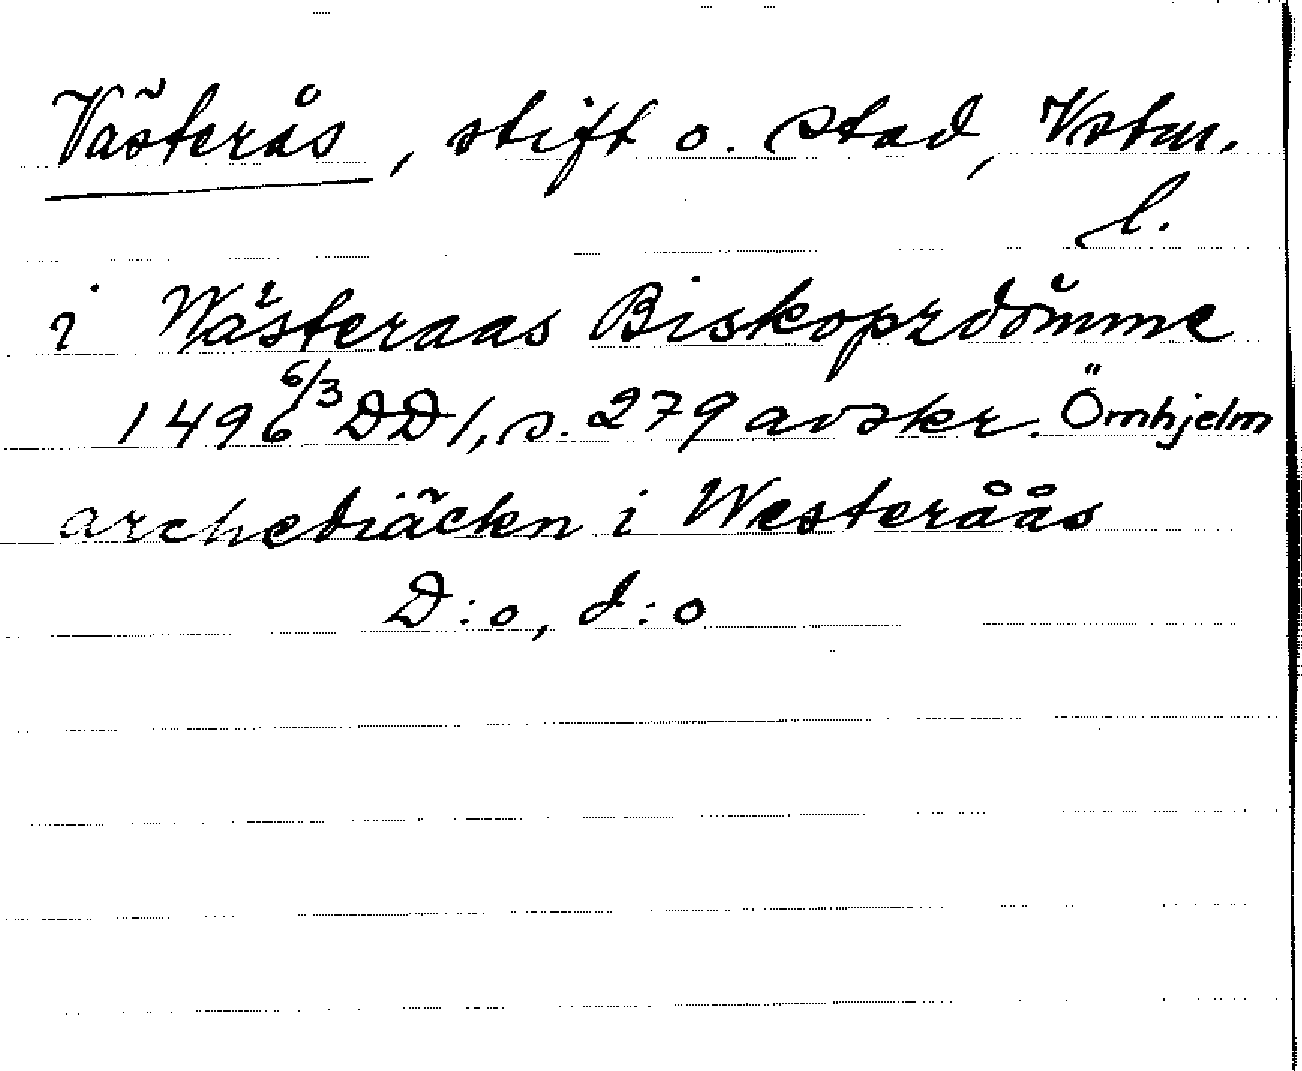 Västerås, stift o. stad, Vstm.
l.
i Wästeraas Biskopzdömme
1496 6/3 DD 1, s. 279 avskr. Örnhjelm
archediäckn i Westeråås
D:o, d:o